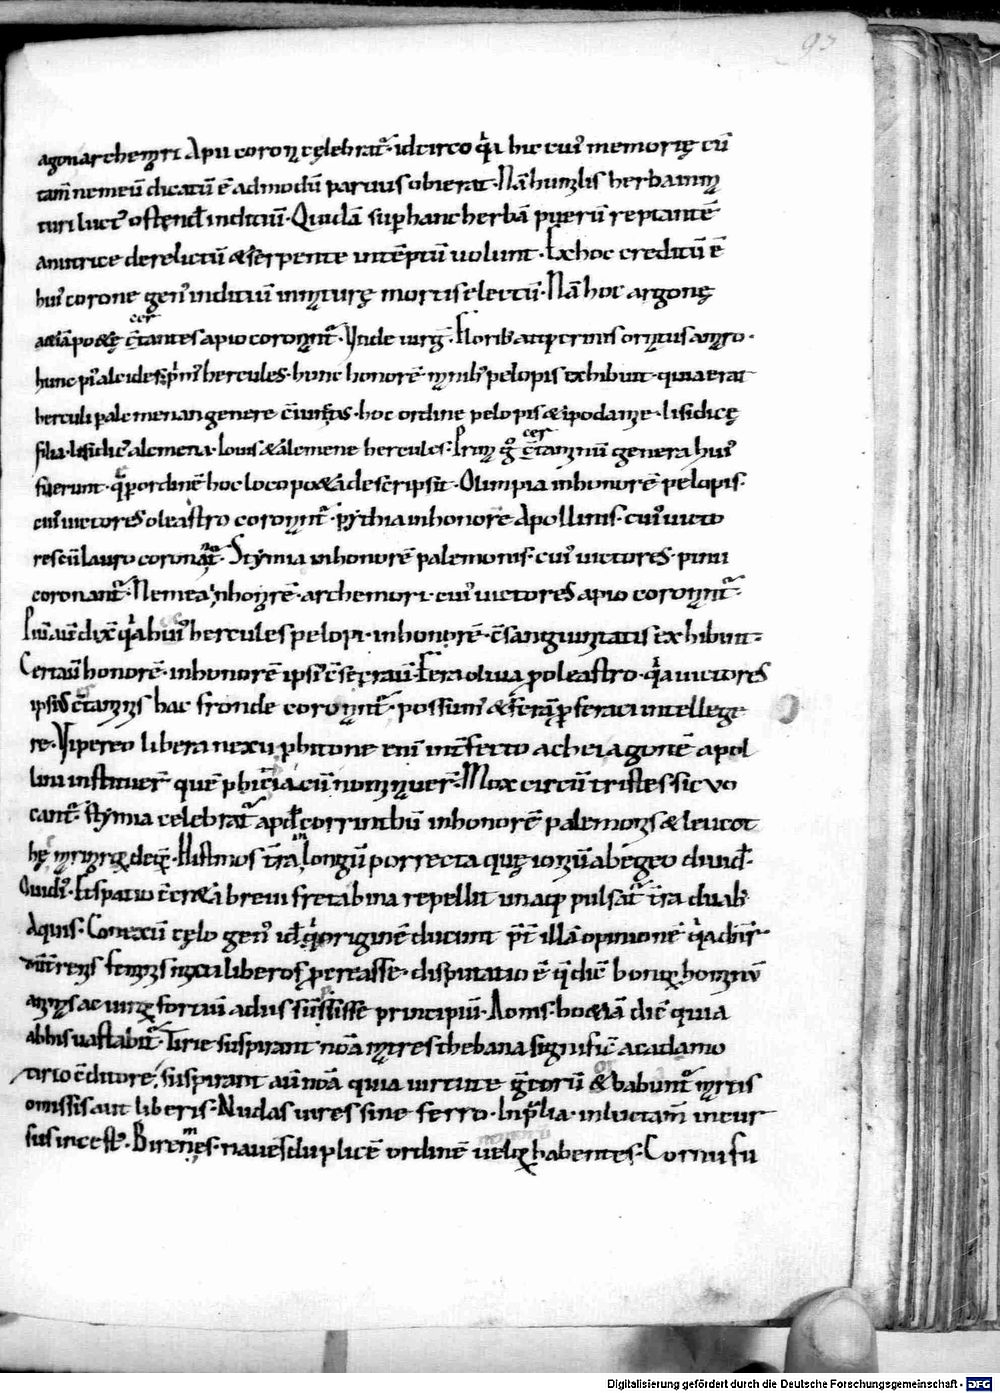 93
agon archemori Apii corona cęlebrat᷑· idcirco q̄a hic cui᷒ memorię cū
tam̄ nemeū dicatū ē admodū paruus obierat· Nā humilis herba inma
turi luct᷒ ostend̄ inditiū· Quidā sup hanc herbā puerū reptantē
a nutrice derelictū &serpente intēptū uolunt· Ex hoc creditū ē
hui᷒ corone gen᷒ inditiū inmaturę mortis electū· Nā hoc agone
certantes apio coronant᷑· Unde uirg̅· Floribꝰ atq; crinis ornatus amaro·
hunc pi᷒ alcides· prim᷒ hercules· hunc honorē manibꝰ pelopis exhibuit· quia erat
herculi pale menan genere c̄iunctus· hoc ordine pelopis &ipodamie· lisidicę
filia· lisidic᷒ alcmena· Iouis &alcmene hercules· Prima g̊ c̄taminū genera hui᷒
fuerunt· q̄ p ordinē hoc loco po&a descripsit· Olimpia in honorē pelopis·
cui᷒ uictores oleastro coronant᷑· pythia in honore Apollinis· cui᷒ uicto
res cū lauro coronant᷑· Stymia in honorē palemonis· cui᷒ uictores· pinu
coronant᷑· Nemea in honorē· archemori· cui᷒ uictores apio coronant᷑·
Pi᷒ aūt dix̄ q̄a hui᷒ hercules pelopi· in honorē· c̄sanguinitatis exhibuit
Certaū honorē· in honorē ipsi᷒ c̄secraū· Fera oliua p oleastro· q̄a uictores
ipsi᷒ c̄taminis hac fronde coronant᷑· possum᷒ &ferā p feraci intellege
re· Vipereo libera nexu phitone enī int̄fecto achei agonē apol
lini instituer̄ quē phiticia cū nominauer̄· Mox circū tristes sic uo
cant᷑· stymia celebrat᷑ apd̄ corrinthū in honorē palemonis &leucot
hę matris eiꝰ deę· Histmos t̄ra in longū porrecta quę ioniū ab egeo diuid̄·
Ouidi᷒· Et spatio c̄cr&a breui freta bina repellit unaq; pulsat᷑ t̄ra duabꝰ
Aquis· Conexū cęlo gen᷒ id̄ q̄ originē ducunt p̄t illā opinionē q̄a dn̄r
libero p ereasse· disputatio ē q̄ diē bonaꝝ hominū
animas ac uirgꝝ fortiū adiis sūpsisse principiū· Aonis· bo&iā diē quia
abhis uastabit᷑· Tirie suspirant noīa matres thebana signific̄ acadamo
tirio c̄ditore· suspirant aūt noīa quia uirtute g̅torū &babunt᷑ matris
omissis aut liberis· Nudas uires sine ferro· In p̄lia· in luctam̄ incur
sus in cest᷒· Biremes· naues duplicē ordinē ueloꝝ habentes· Cornu fu
Digitalisierung gefördert durch die Deutsche Forschungsgemeinschaft - DFG